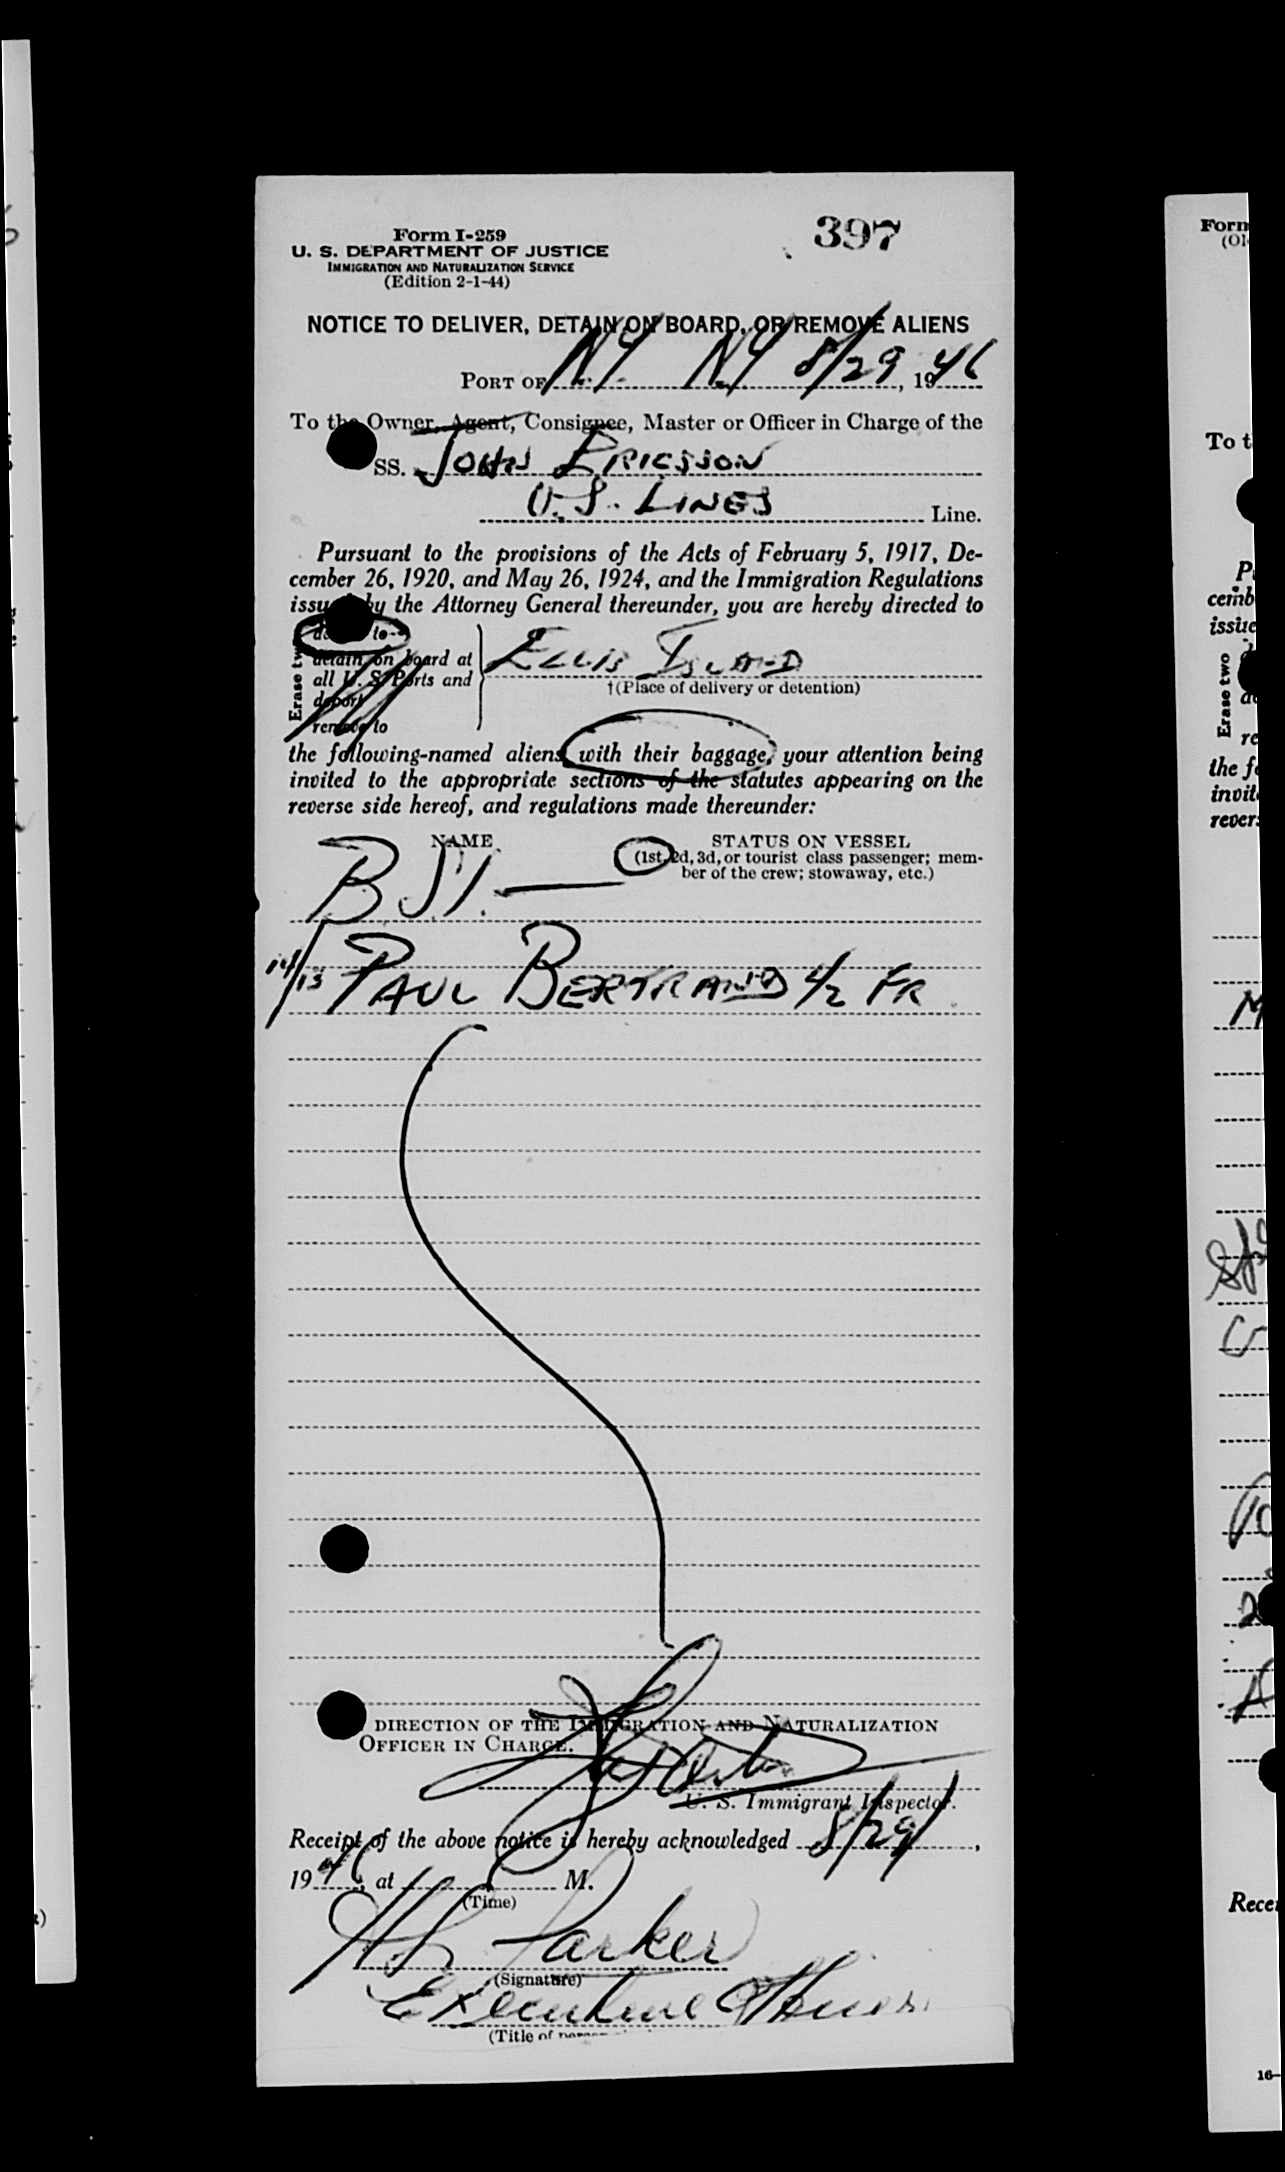 397
Form I-259
U. S. DEPARTMENT OF JUSTICE
IMMIGRATION AND NATURALIZATION SERVICE
(Edition 2-1-44)
NOTICE TO DELIVER, DETAIN ON BOARD, OR REMOVE ALIENS
PORT OF N.Y. N.Y 8/29, 1946
To the Owner, Agent, Consignee, Master or Officer in Charge of the
SS. JOHN ERICSSON
U.S. LINES Line.
Pursuant to the provisions of the Acts of February 5, 1917, De-
cember 26, 1920, and May 26, 1924, and the Immigration Regulations
issued by the Attorney General thereunder, you are hereby directed to
Erase two
to
detain on board at
all U. S. Ports and
deport
remove to
ELLIS ISLAND
†(Place of delivery or detention)
the following-named aliens with their baggage, your attention being
invited to the appropriate sections of the statutes appearing on the
reverse side hereof, and regulations made thereunder:
NAME
STATUS ON VESSEL
(1st, 2d, 3d, or tourist class passenger; mem-
ber of the crew; stowaway, etc.)
B.S.I.
14/13 PAUL BERTRAND 4/2 FR
DIRECTION OF THE IMMIGRATION AND NATURALIZATION
OFFICER IN CHARGE.
U. S. Immigrant Inspector.
Receipt of the above notice is hereby acknowledged 8/29,
1946, at M.
(Time)
Parker
(Signature)
Executive Officer
(Title of
Form
To t
Erase two
the f
Recei
16-